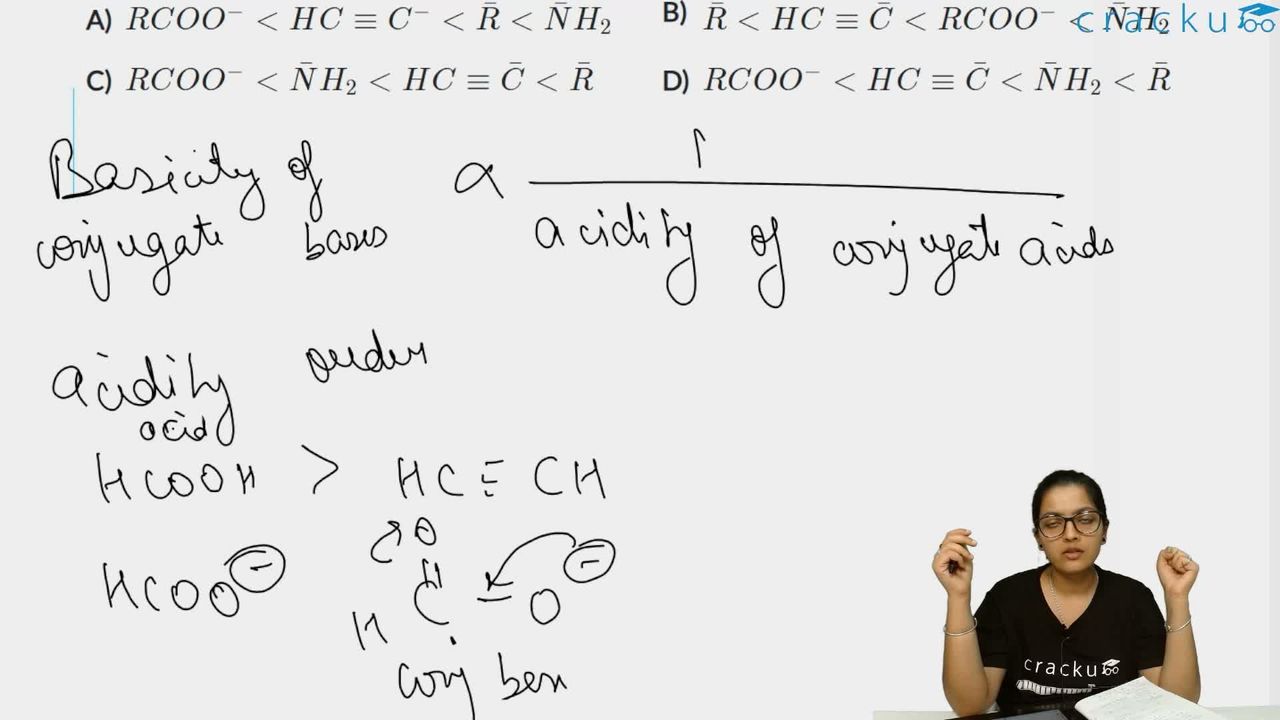 A) RCOO⁻ < HC ≡ C⁻ < R̄ < N̄H₂
B) R̄ < HC ≡ C̄ < RCOO⁻ < N̄H₂
cracku
C) RCOO⁻ < N̄H₂ < HC ≡ C̄ < R̄
D) RCOO⁻ < HC ≡ C̄ < N̄H₂ < R̄
Basicity of
conjugate bases
α
1
acidity of conjugate acids
acidity order
acid
HCOOH > HC≡CH
O
HCOO⁻
H C O ⁻
conj
cracku